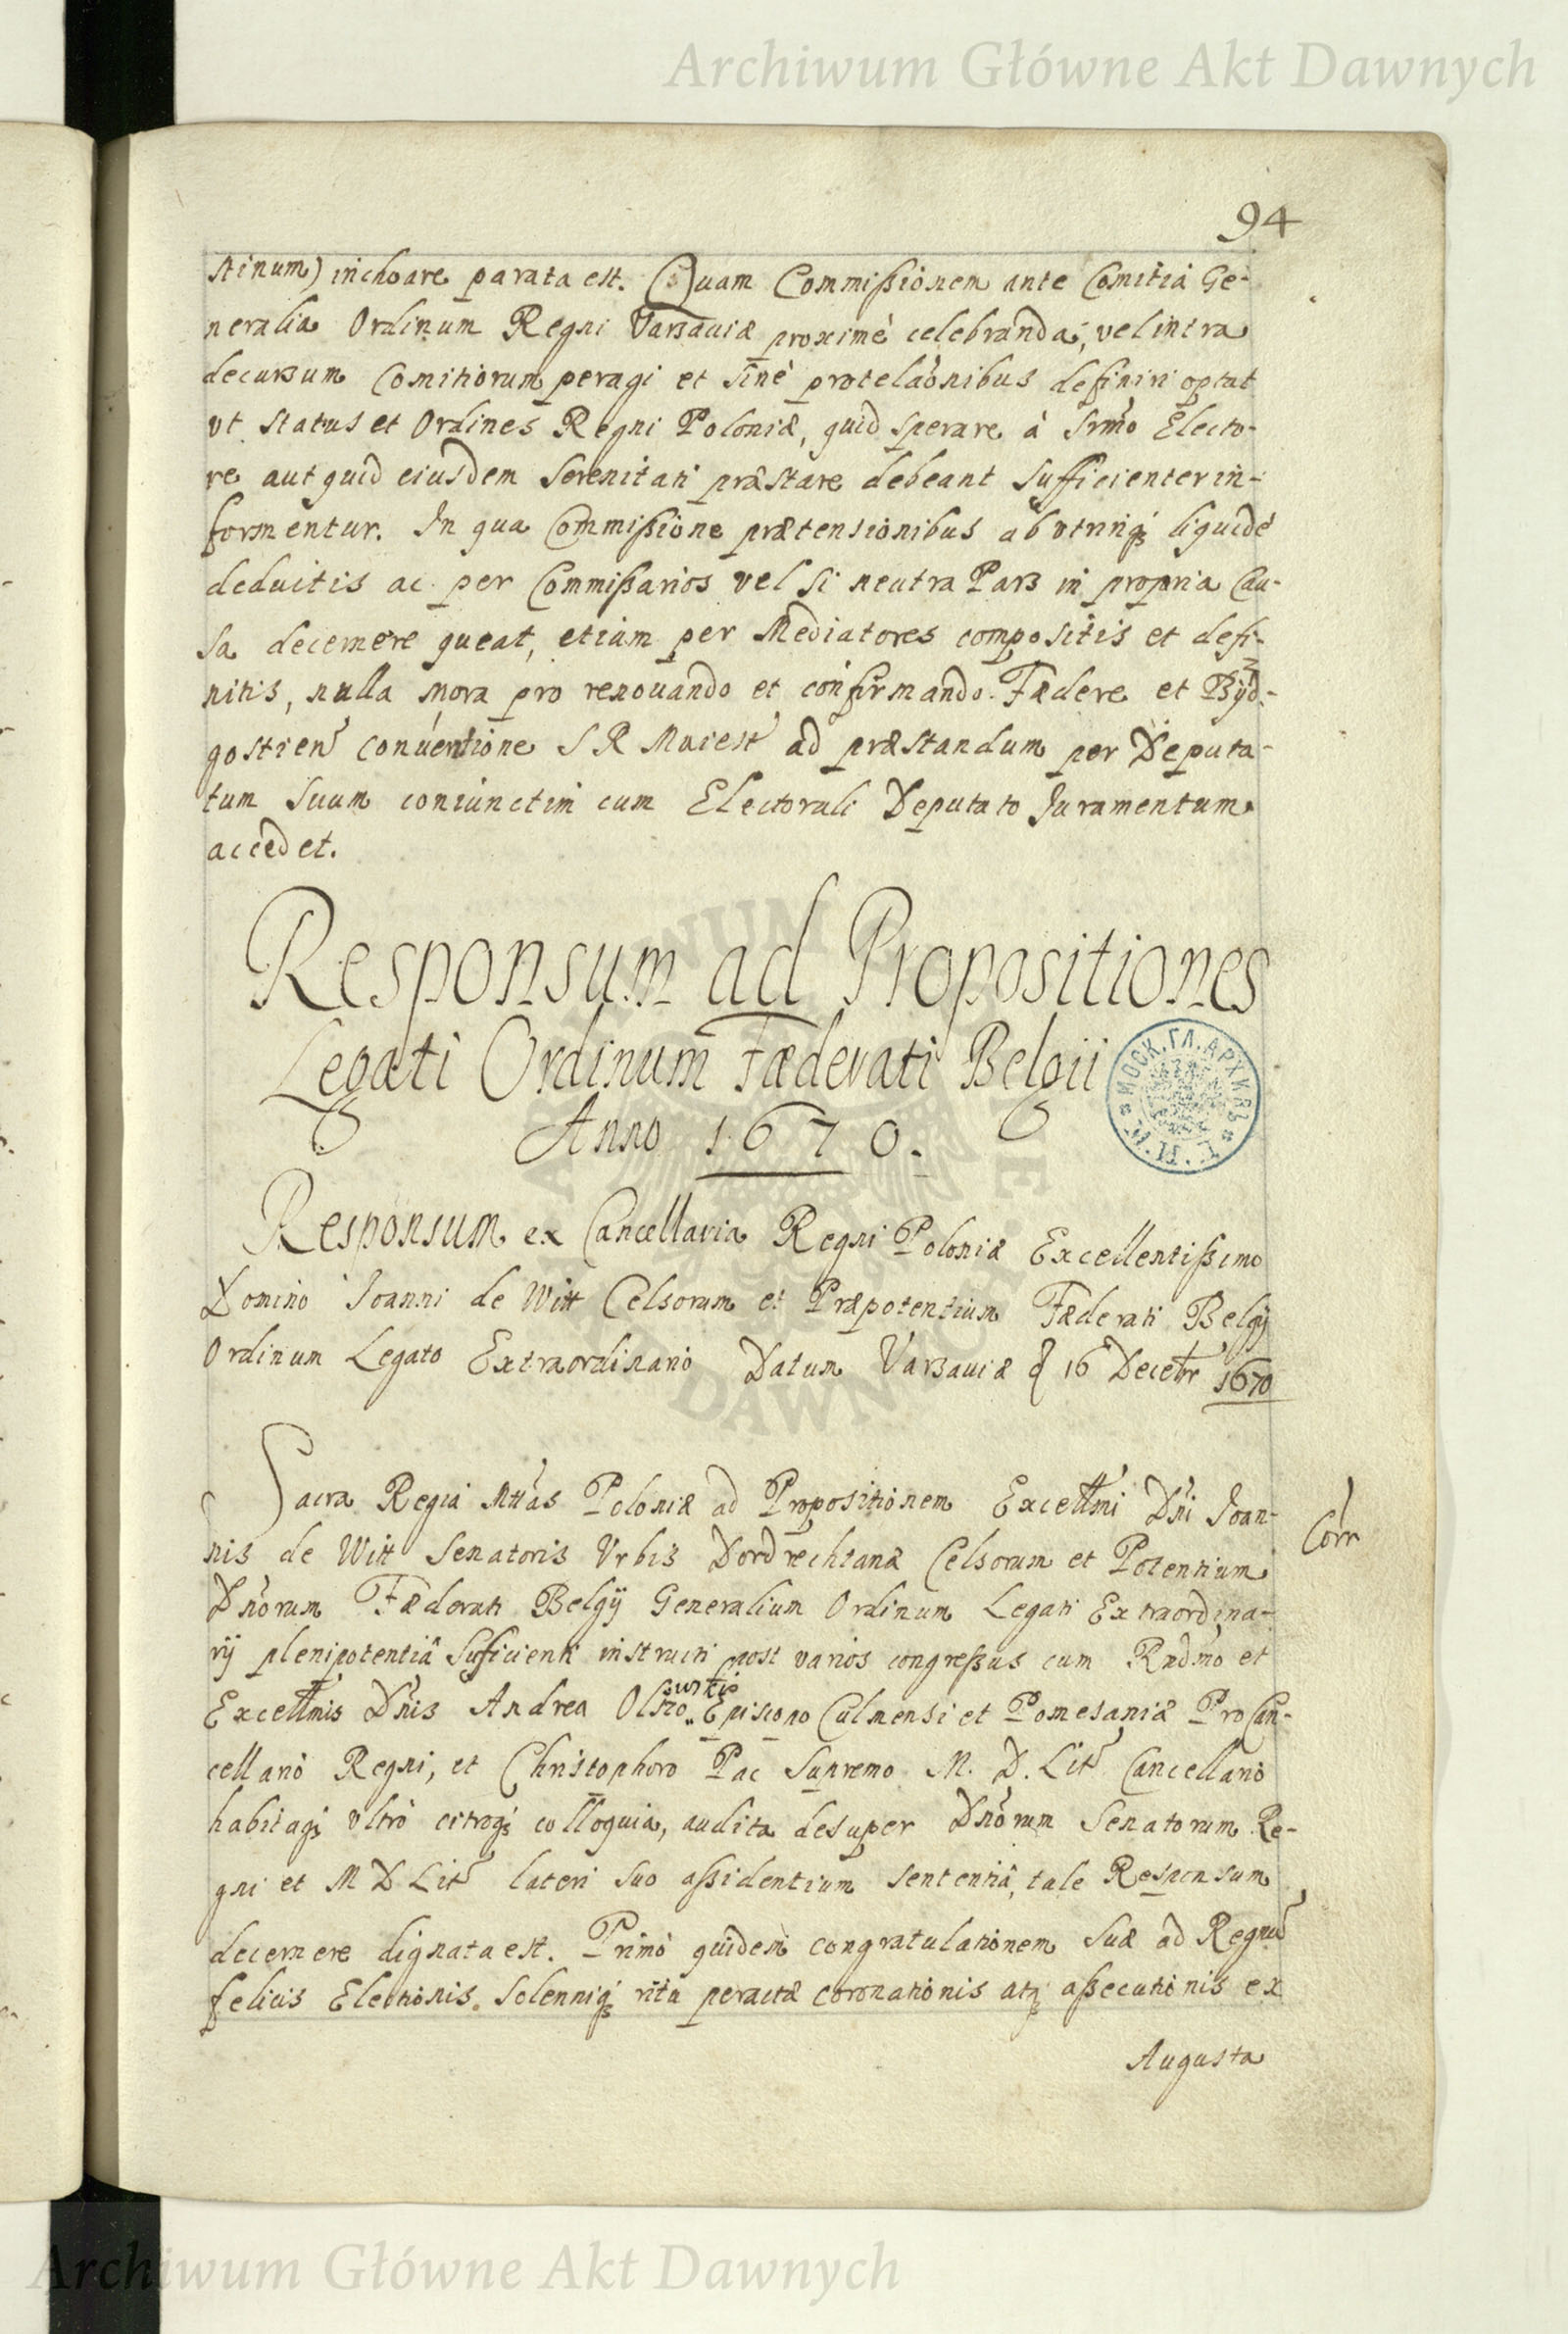 Archiwum Główne Akt Dawnych
94
stinum) inchoare parata est. Quam Commißionem ante Comitia Ge-
neralia Ordinum Regni Varsauiæ proximè celebranda, vel intra
decursum Comitiorum peragi et sinè protelaõnibus definiri optat
vt status et Ordines Regni Poloniæ, quid sperare à Srmo Electo-
re aut quid eiusdem Serenitati præstare debeant sufficienter in-
formentur. In qua Commißione prætensionibus ab utrinq liquidè
deductis ac per Commißarios vel si neutra Pars in propria Cau-
sa decernere queat, etiam per Mediatores compositis et defi-
nitis, nulla mora pro renouando et confirmando Fædere et Byd-
gostien conventione S R Maiest ad præstandum per Deputa-
tum suum coniunctim cum Electorali Deputato Juramentum
accedet.
Responsum ad Propositiones
Legati Ordinum Fæderati Belgii
Anno 1670.
МОСК.ГЛ.АРХИВЪ
Responsum ex Cancellaria Regni Poloniæ Excellentißimo
Domino Joanni de Witt Celsorum et Præpotentium Fæderati Belgij
Ordinum Legato Extraordinario Datum Varsauiæ 16 Decebr 1670
Sacra Regia Mttas Poloniæ ad Propositionem Excellmi Dni Joan-
nis de Witt Senatoris Vrbis Dordrechtanæ Celsorum et Potentium
Corr
Dnorum Fæderati Belgij Generalium Ordinum Legati Extraordina-
rij plenipotentiâ sufficienti instructi post varios congreßus cum Rndmo et
Excellmis Dnis Andrea Olszowski Episcopo Culmensi et Pomesaniæ ProCan-
cellario Regni, et Christophoro Pac Supremo M. D. Lit Cancellario
habitaq vltrò citroq colloquia, audita desuper Dnorum Senatorum Re-
gni et M D Lit lateri suo aßidentium sententiâ, tale Responsum
decernere dignata est. Primò quidem congratulationem suæ ad Regnu
felicis Electionis, solenniq ritu peractæ coronationis atq aßecutionis ex
Augusta
Archiwum Główne Akt Dawnych